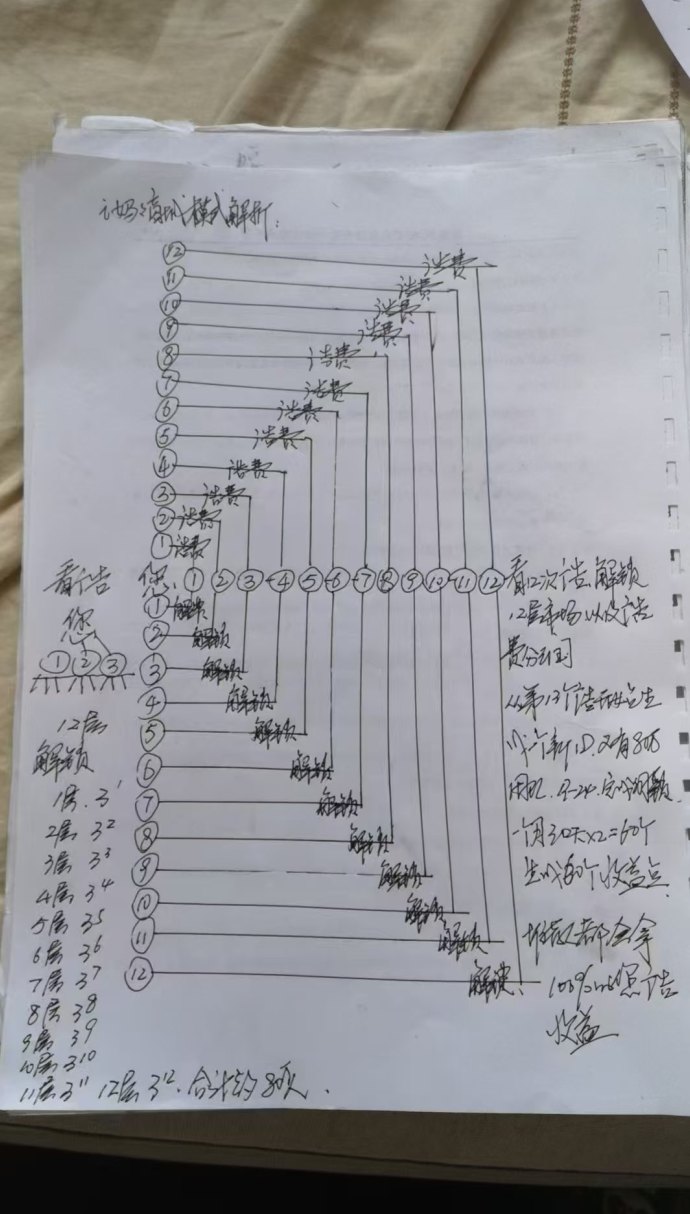 商城模式解析:
⑫
消费
⑪
消费
⑩
消费
⑨
消费
⑧
消费
⑦
消费
⑥
消费
⑤
消费
④
消费
③
消费
②
消费
①
消费
看广告
您
① ② ③
12层
解锁
1层. 3¹
2层 3²
3层 3³
4层 3⁴
5层 3⁵
6层 3⁶
7层 3⁷
8层 3⁸
9层 3⁹
10层 3¹⁰
11层 3¹¹ 12层 3¹². 合计约80万.
您 ① ② ③ ④ ⑤ ⑥ ⑦ ⑧ ⑨ ⑩ ⑪ ⑫
① 解锁
② 解锁
③ 解锁
④ 解锁
⑤ 解锁
⑥ 解锁
⑦ 解锁
⑧ 解锁
⑨ 解锁
⑩ 解锁
⑪ 解锁
⑫ 解锁
看12次广告.解锁
12层市场.以及广告
费分红
从第13个广告开始生
一个月30天x2=60个
生成60个收益点.
100%的您广告
收益